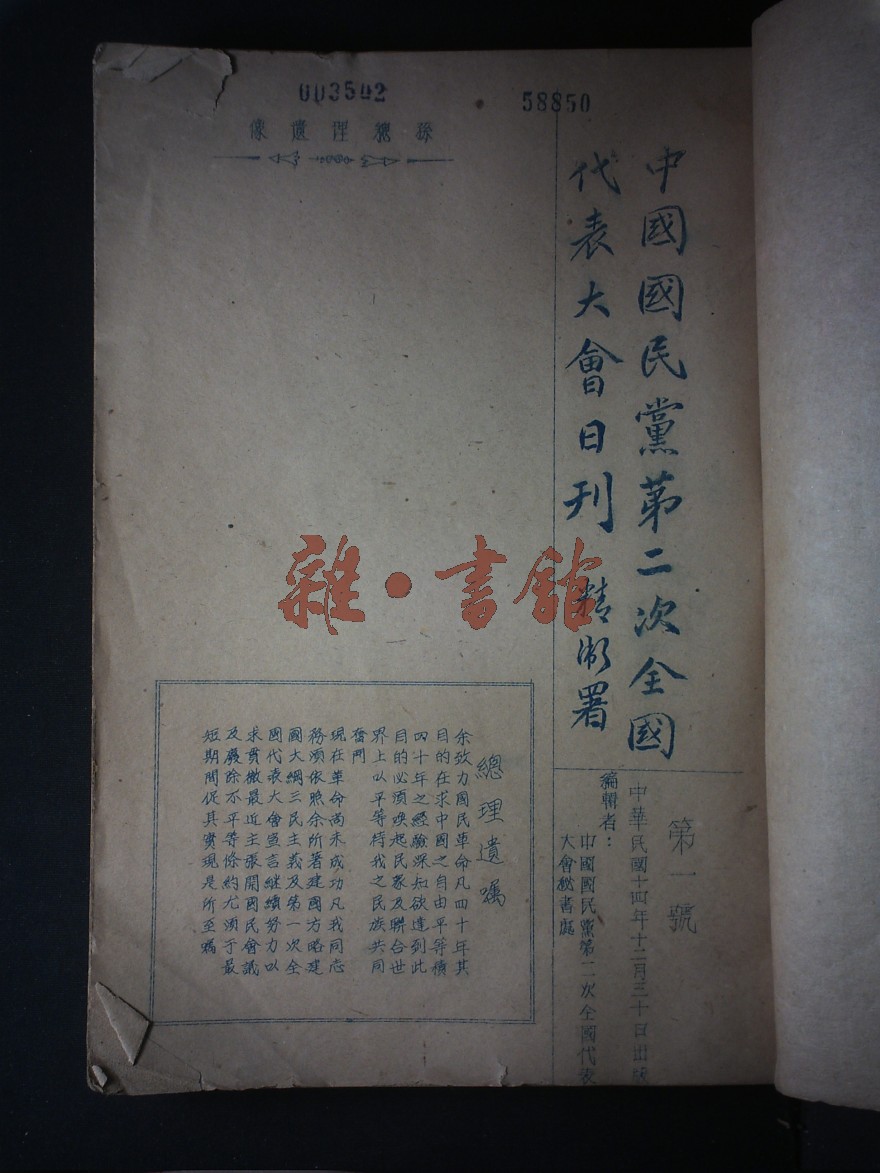 003542
58850
孫總理遺像
中國國民黨第二次全國
代表大會日刊 精衛署
第一號
中華民國十四年十二月三十日出版
編輯者：
中國國民黨第二次全國代表
大會秘書處
總理遺囑
余致力國民革命凡四十年其
目的在求中國之自由平等積
四十年之經驗深知欲達到此
目的必須喚起民衆及聯合世
界上以平等待我之民族共同
奮鬥
現在革命尚未成功凡我同志
務須依照余所著建國方略建
國大綱三民主義及第一次全
國代表大會宣言繼續努力以
求貫徹最近主張開國民會議
及廢除不平等條約尤須于最
短期間促其實現是所至囑
雜·書館